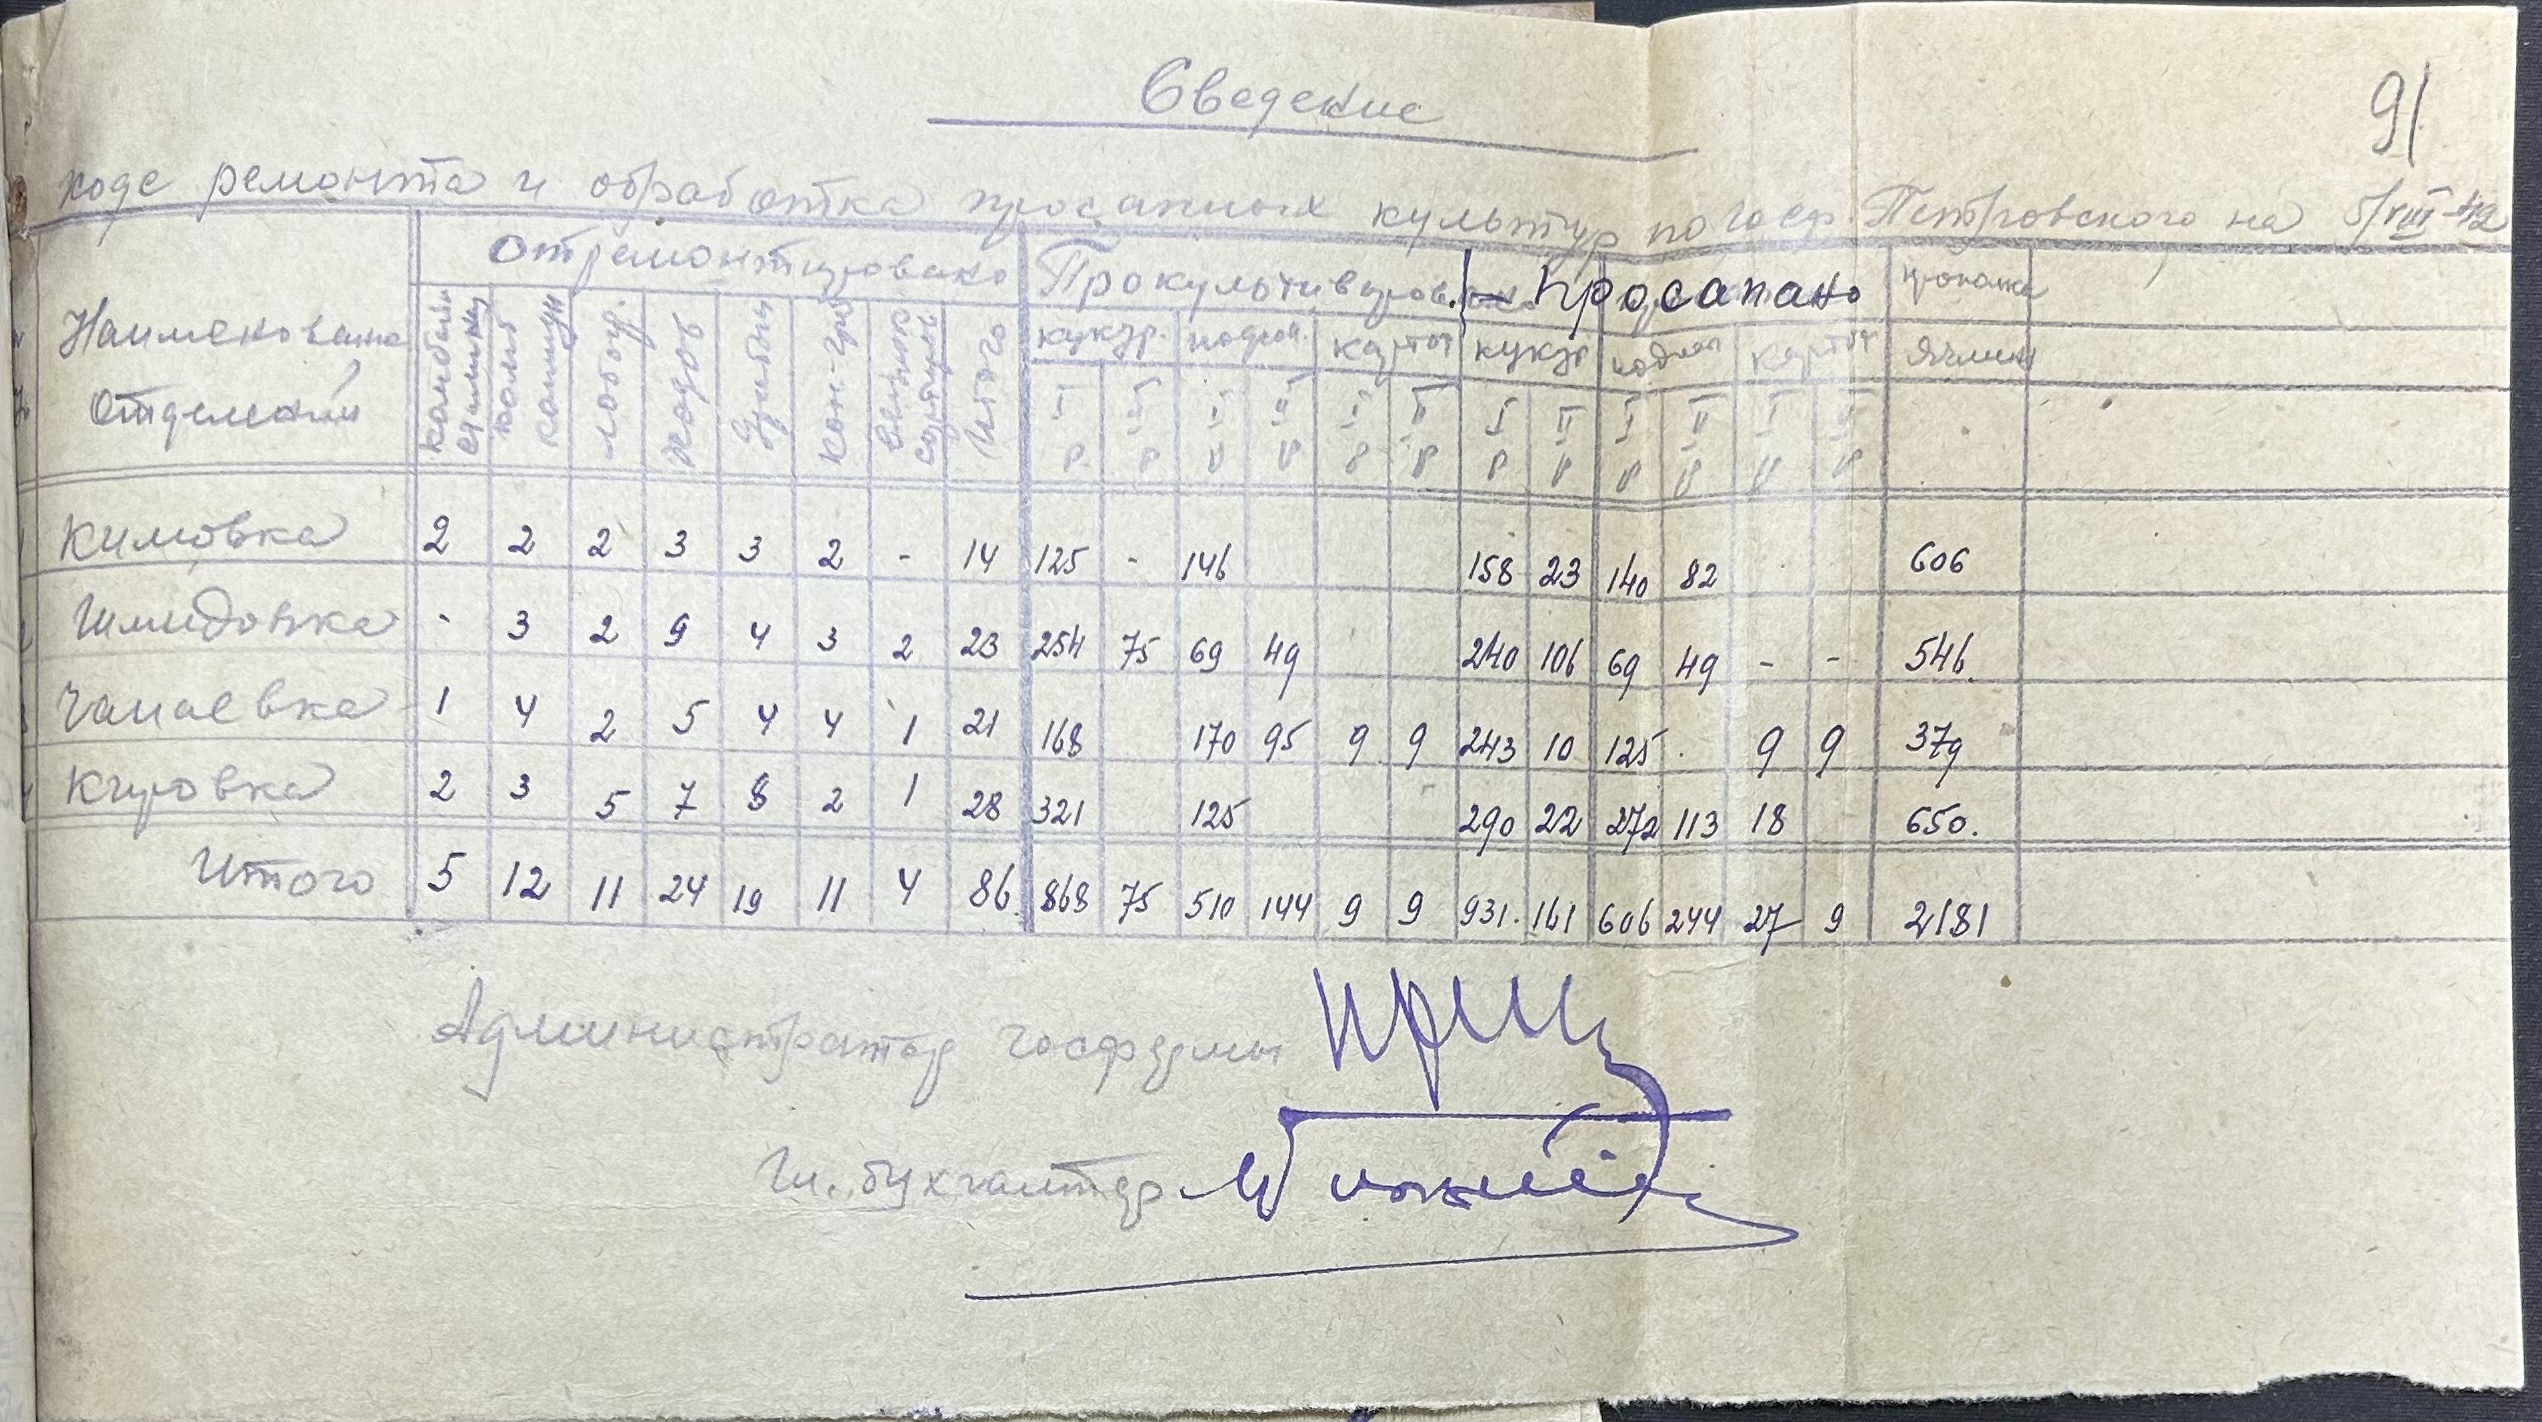 91
Сведение
ходе ремонта и обработка просапных культур по госф. Петровского на 5/VIII-42
Наименование Отделений
Отремонтировано Прокультивиров. Просапано прополка
комбайн сталинец комб комунар лобог. ходов кон-гра Итого
кукур. подсол. картоф кукур подсол картоф Ячмень
I II I II I II I II I II I II
Кимовка 2 2 2 3 3 2 - 14 125 - 146 158 23 140 82 606
Шмидовка - 3 2 9 4 3 2 23 254 75 69 49 240 106 69 49 - - 546.
Чапаевка 1 4 2 5 4 4 1 21 168 170 95 9 9 243 10 125 . 9 9 379
Кировка 2 3 5 7 8 2 1 28 321 125 290 22 272 113 18 650.
Итого 5 12 11 24 19 11 4 86. 868 75 510 144 9 9 931. 161 606 244 27 9 2181
Администратор госфермы
Гл. бухгалтер